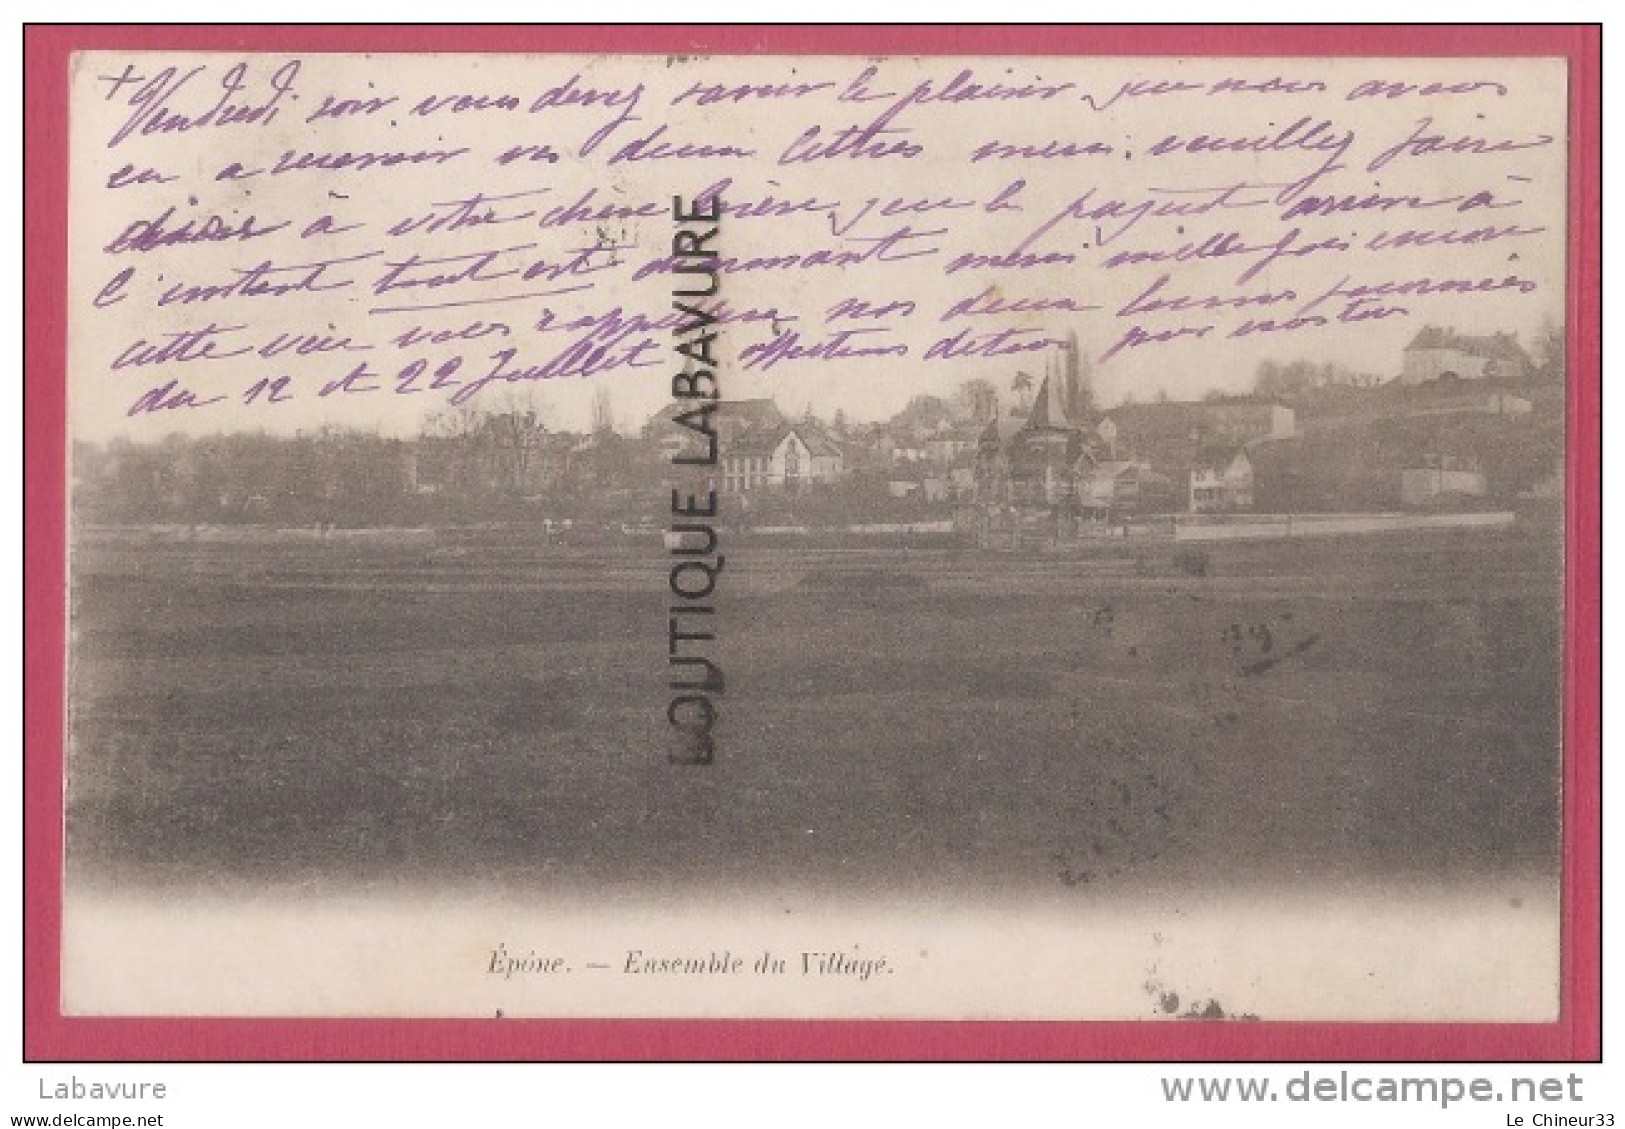 + Vendredi soir. vous devez savoir le plaisir que nous avons
eu a recevoir vos deux lettres merci. veuillez faire
à votre chère que le paquet arrive à
l'instant tout est charmant merci mille fois encore
cette vue vous rappellera nos deux bonnes journées
du 12 et 22 Juillet affections de tous pour vos tous
LOUTIQUE LABAVURE
Épône. — Ensemble du Village.
Labavure
www.delcampe.net
Le Chineur33